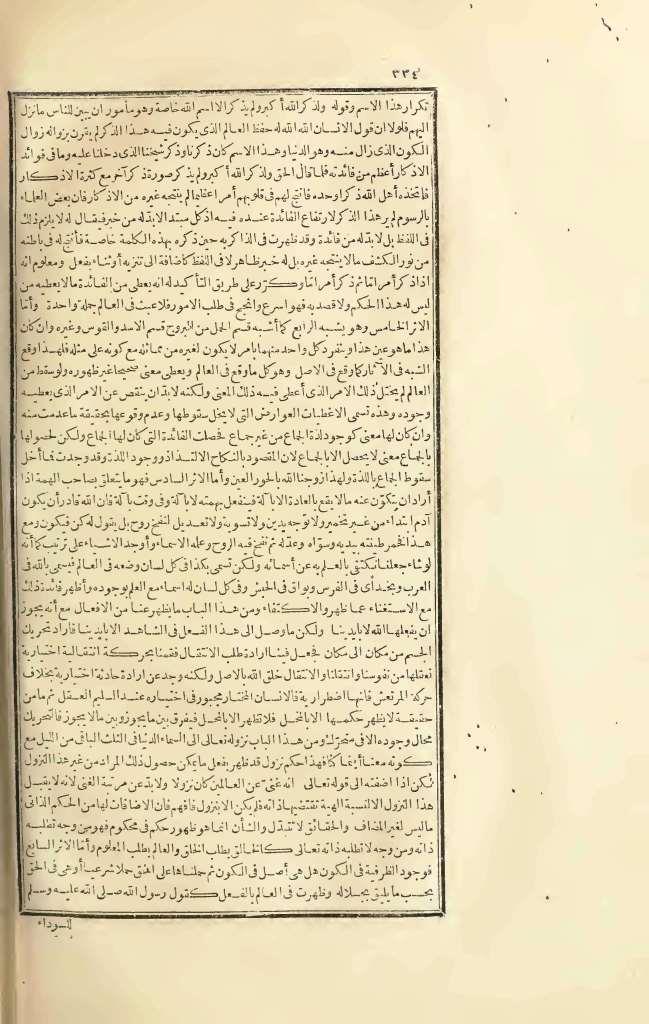 ٣٣٤
تكرار هذا الاسم وقوله ولذكر الله أكبر ولم يذكر الا اسم الله خاصة وهو مأمور ان يبين للناس ما نزل
اليهم فلولا ان قول الانسان الله الله له حفظ العالم الذى يكون فيه هذا الذكر لم يقرن بزواله زوال
الكون الذى زال منه وهو الدنيا وهذا الاسم كان ذكرنا وذكر شيخنا الذى دخلنا عليه وما فى فوائد
الاذكار أعظم من فائدته فلما قال الحق ولذكر الله أكبر ولم يذكر صورة ذكر آخر مع كثرة الاذكار
فاتخذه أهل الله ذكرا وحده فأنتج لهم فى قلوبهم أمرا عظيما لم ينتجه غيره من الاذكار فان بعض العلماء
بالرسوم لم ير هذا الذكر لارتفاع الفائدة عنده فيه اذ كل مبتدا لابد له من خبر فيقال له لا يلزم ذلك
فى اللفظ بل لابد له من فائدة وقد ظهرت فى الذاكر به حين ذكره بهذه الكلمة خاصة فأنتج له فى باطنه
من نور الكشف ما لا ينتجه غيره بل له خبر ظاهر لا فى اللفظ كاضافة الى تنزيه أو ثناء بفعل ومعلوم انه
اذا ذكر أمر تما ثم ذكر أمر تما وكرر على طريق التأكيد له انه يعطى من الفائدة ما لا يعطيه من
ليس له هذا الحكم ولا قصد به فهو أسرع وأنجع فى طلب الامور فلا عبث فى العالم جملة واحدة وأما
الاثر الخامس وهو يشبه الرابع كما أشبه قسم الحمل من البروج قسم الاسد والقوس وغيره وان كان
هذا ما هو عين هذا وينفرد كل واحد منهما بأمر لا يكون لغيره من مماثله مع كونه على مثله فلهذا وقع
الشبه فى الآثار كما وقع فى الاصل وهو كل ما وقع فى العالم ويعطى معنى صحيحا غير ظهوره ولو سقط من
العالم لم يختل ذلك الامر الذى أعطى فيه ذلك المعنى ولكنه لابد ان ينقص عن الامر الذى يعطيه
وجوده وهذه تسمى الاعطيات العوارض التى لا يخل سقوطها وعدم وقوعها بحقيقة ما عدمت منه
وان كان لها معنى كوجود لذة الجماع من غير جماع فحصلت الفائدة التى كان لها الجماع ولكن لحصولها
بالجماع معنى لا يحصل الا بالجماع لان المقصود بالنكاح الالتذاذ ووجود اللذة وقد وجدت فما أخل
سقوط الجماع باللذة ولهذا زوجنا الله بالحور العين وأما الاثر السادس فهو ما يتعلق بصاحب الهمة اذا
أراد ان يتكون عنه ما لا يقع بالعادة الا بآلة فينفعل بهمته لا بآلة وفى وقت بآلة فان الله قادر أن يكون
آدم ابتداء من غير تخمير ولا توجيه يدين ولا تسوية ولا تعديل لنفخ روح بل يقول له كن فيكون ومع
هذا فخمر طينته بيديه وسواه وعدله ثم نفخ فيه الروح وعلمه الاسماء وأوجد الاشياء على ترتيب كما أنه
لو شاء جعلنا نكتفى بالعلم به عن أسمائه ولكن تسمى بكذا فى كل لسان وضعه فى العالم فيسمى بالله فى
العرب وبخداى فى الفرس وبواق فى الحبش وفى كل لسان له اسماء مع العلم بوجوده وأظهر فائدة ذلك
مع الاستغناء عما ظهر والاكتفاء ومن هذا الباب ما يظهر عنا من الافعال مع أنه يجوز
ان يفعلها الله لا بأيدينا ولكن ما وصل الى هذا الفعل فى الشاهد الا بأيدينا فأراد تحريك
الجسم من مكان الى مكان فجعل فينا ارادة طلب الانتقال فقمنا بحركة انتقالية اختيارية
نعقلها من نفوسنا وانتقلنا والانتقال خلق الله بالاصل ولكنه وجد عن ارادة حادثة اختيارية بخلاف
حركة المرتعش فانها اضطرارية فالانسان المختار مجبور فى اختياره عند السليم العقل ثم ما من
حقيقة لا يظهر حكمها الا بالمحل فلا تظهر الا بالمحل فيفرق بين ما يجوز وبين ما لا يجوز فالتحريك
محال وجوده الا فى متحرك ومن هذا الباب نزوله تعالى الى السماء الدنيا فى الثلث الباقى من الليل مع
كونه معنا أينما كنا فهذا حكم نزول قد ظهر بفعل ما يمكن حصول ذلك المراد من غير هذا النزول
لكن اذا اضفته الى قوله تعالى انه غنى عن العالمين كان نزولا ولابد عن مرتبة الغنى لانه لا يقبل
هذا النزول الا نسبة الهية تقتضيها ذاته فلم يكن الا بنزول فافهم فان الاضافات لها من الحكم الذاتى
ما ليس لغير المضاف والحقائق لا تتبدل والشأن انما هو ظهور حكم فى محكوم فهو من وجه تطلبه
ذاته ومن وجه لا تطلبه ذاته تعالى كالخالق يطلب الخلق والعالم يطلب المعلوم وأما الاثر السابع
فوجود الظرفية فى الكون هل هى أصل فى الكون ثم حملناها على الحق حملا شرعيا أو هى فى الحق
بحسب ما يليق بجلاله وظهرت فى العالم بالفعل كقول رسول الله صلى الله عليه وسلم
للسوداء